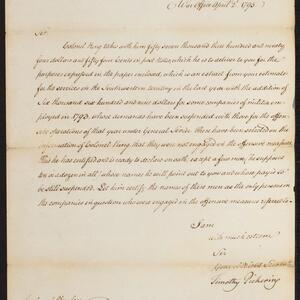 War Office April 2d 1795.
Sir
Colonel King takes with him fifty seven thousand three hundred and ninety
four dollars and fifty four Cents in post notes, which he is to deliver to you for the
purpose expressed in the paper inclosed, which is an extract from your estimate
for the services on the Southwestern territory in the last year with the addition of
Six thousand six hundred and nine dollars for some companies of militia em
ployed in 1793, whose demands have been suspended with those for the offen
sive operations of that year under General Sevier. These have been selected on the
information of Colonel King that they were not engaged in the offensive measures.
This he has certified and is ready to declare on oath, except a few men, he supposes
ten or a dozen in all whose names he will point out to you and whose pay is to
be still suspended. Let him certify the names of these men as the only persons in
the companies in question who were engaged in the offensive measures referred to.
I am
with much esteem
Sir
Your Obedient Servant
Timothy Pickering